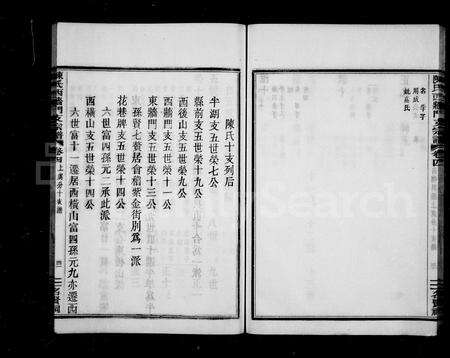 名 字子
用成
娶莊氏
陳氏西牆門支宗譜
卷四
陳氏十支列后
半湖支五世榮七公
縣前支五世榮十九公
西後山支五世榮九公
西牆門支五世榮十公
東牆門支五世榮十三公
孫晉七贅居會稽紫金街別爲一派
花巷牌支五世榮十四公
六世富四孫元二承此派
西橫山支五世榮十四公
六世富十一遷居西橫山富四孫元九亦遷西
陳氏西牆門支宗譜
卷四